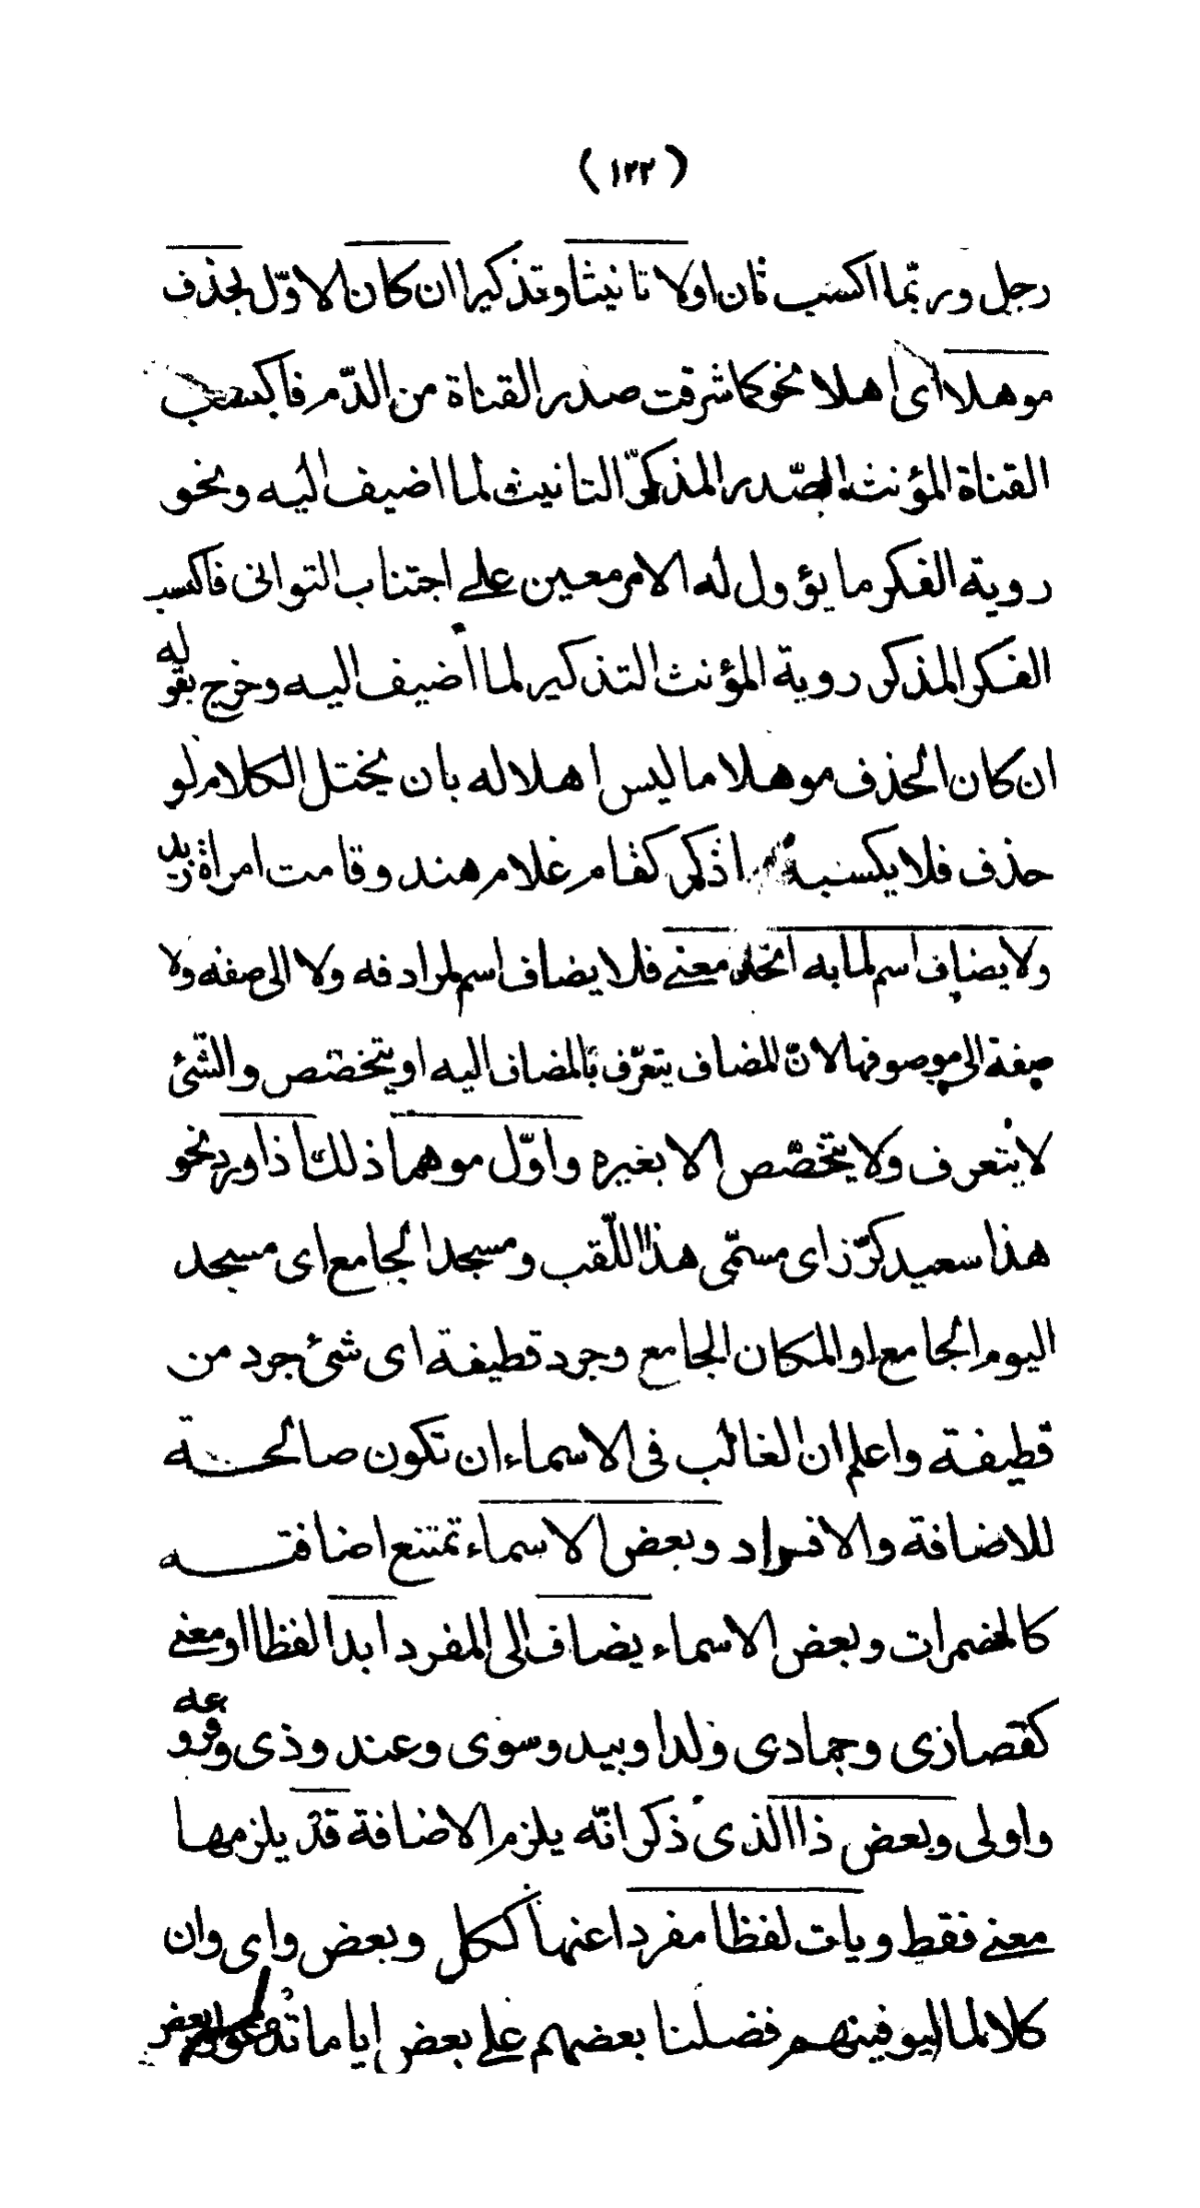 (١٢٢)
رجل وربّما اكسب ثان اولا تانيثا وتذكيرا ان كان لاوّل بحذف
موهلا اى اهلا نحو كما شرقت صدر القناة من الدّم فاكتسب
القناة المؤنثه الصّدر المذكّر التانيث لما اضيف اليه ونحو
روية الفكر ما يؤول له الامر معين على اجتناب التوانى فاكسب
الفكر المذكر روية المؤنث التذكير لما اضيف اليه وخرج بقوله
ان كان الحذف موهلا ما ليس اهلا له بان يختل الكلام لو
حذف فلا يكسبه اذكر كقام غلام هند وقامت امراة زيد
ولا يضاف اسم لما به اتحد معنى فلا يضاف اسم لمرادفه ولا الى صفته ولا
صفة الى موصوفها لانّ المضاف يتعرّف بالمضاف اليه او يتخصّص والشّئ
لا يتعرف ولا يتخصّص الا بغيره واوّل موهما ذلك اذا ورد نحو
هذا سعيد كرّز اى مسمّى هذا اللّقب ومسجد الجامع اى مسجد
اليوم الجامع او المكان الجامع وجرد قطيفة اى شئ جرد من
قطيفة واعلم ان الغالب فى الاسماء ان تكون صالحة
للاضافة والافراد وبعض الاسماء تمتنع اضافته
كالمضمرات وبعض الاسماء يضاف الى المفرد ابدا لفظا او معنى
كقصارى وجمادى ولدا وبيد وسوى وعند وذى وفروعه
واولى وبعض ذا الذى ذكر انّه يلزم الاضافة قد يلزمها
معنى فقط ويات لفظا مفردا عنها ككل وبعض واى وان
كلا لما ليوفينهم فضلنا بعضهم على بعض ايا ما تدعوا